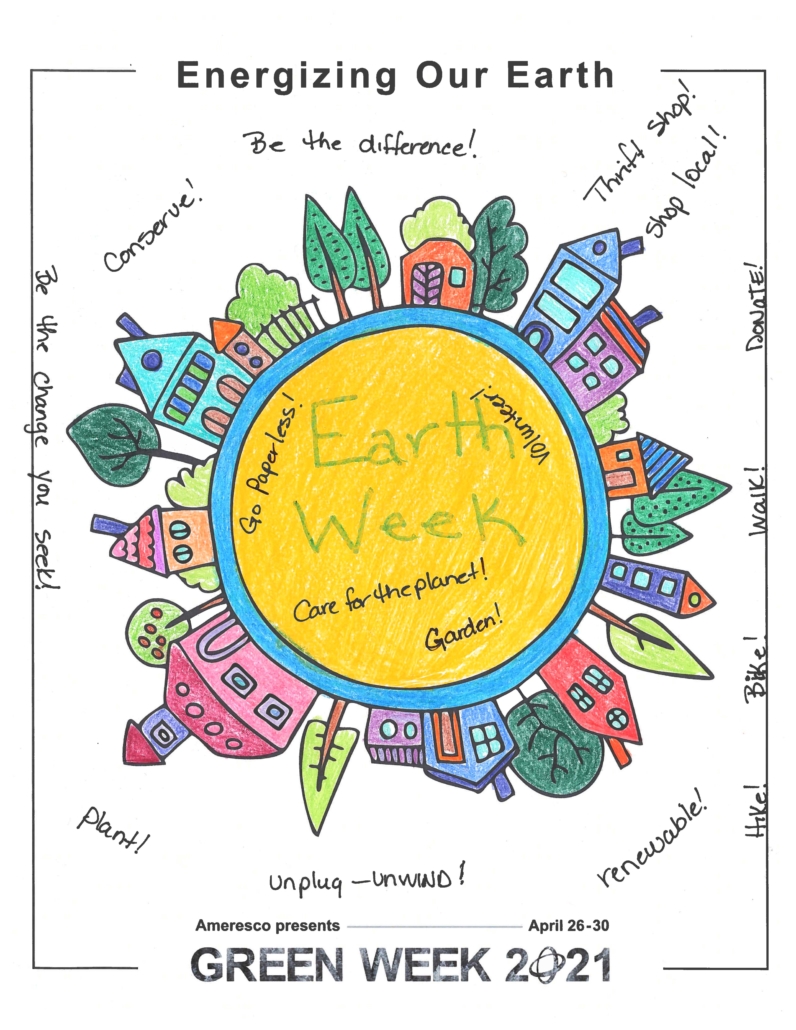 Energizing Our Earth
Be the difference!
Thrift shop!
Shop local!
Conserve!
Be the change you seek!
DONATE!
Walk!
Bike!
Hike!
Go Paperless!
Volunteer!
Earth
Week
Care for the planet!
Garden!
Plant!
renewable!
Unplug - UNWIND!
Ameresco presents April 26-30
GREEN WEEK 2021